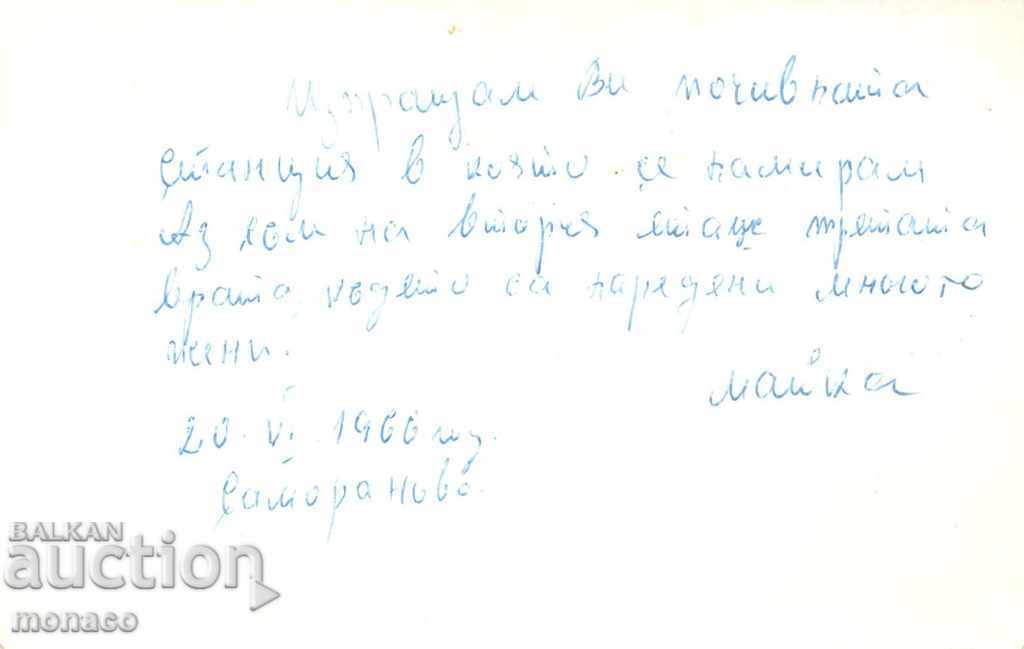 Изпращам Ви почивната
станция в която се намирам
Аз съм на втория етаж третата
врата, където са наредени многото
жени.
майка
20. VI. 1966 г.
Самораново.
BALKAN
auction
monaco